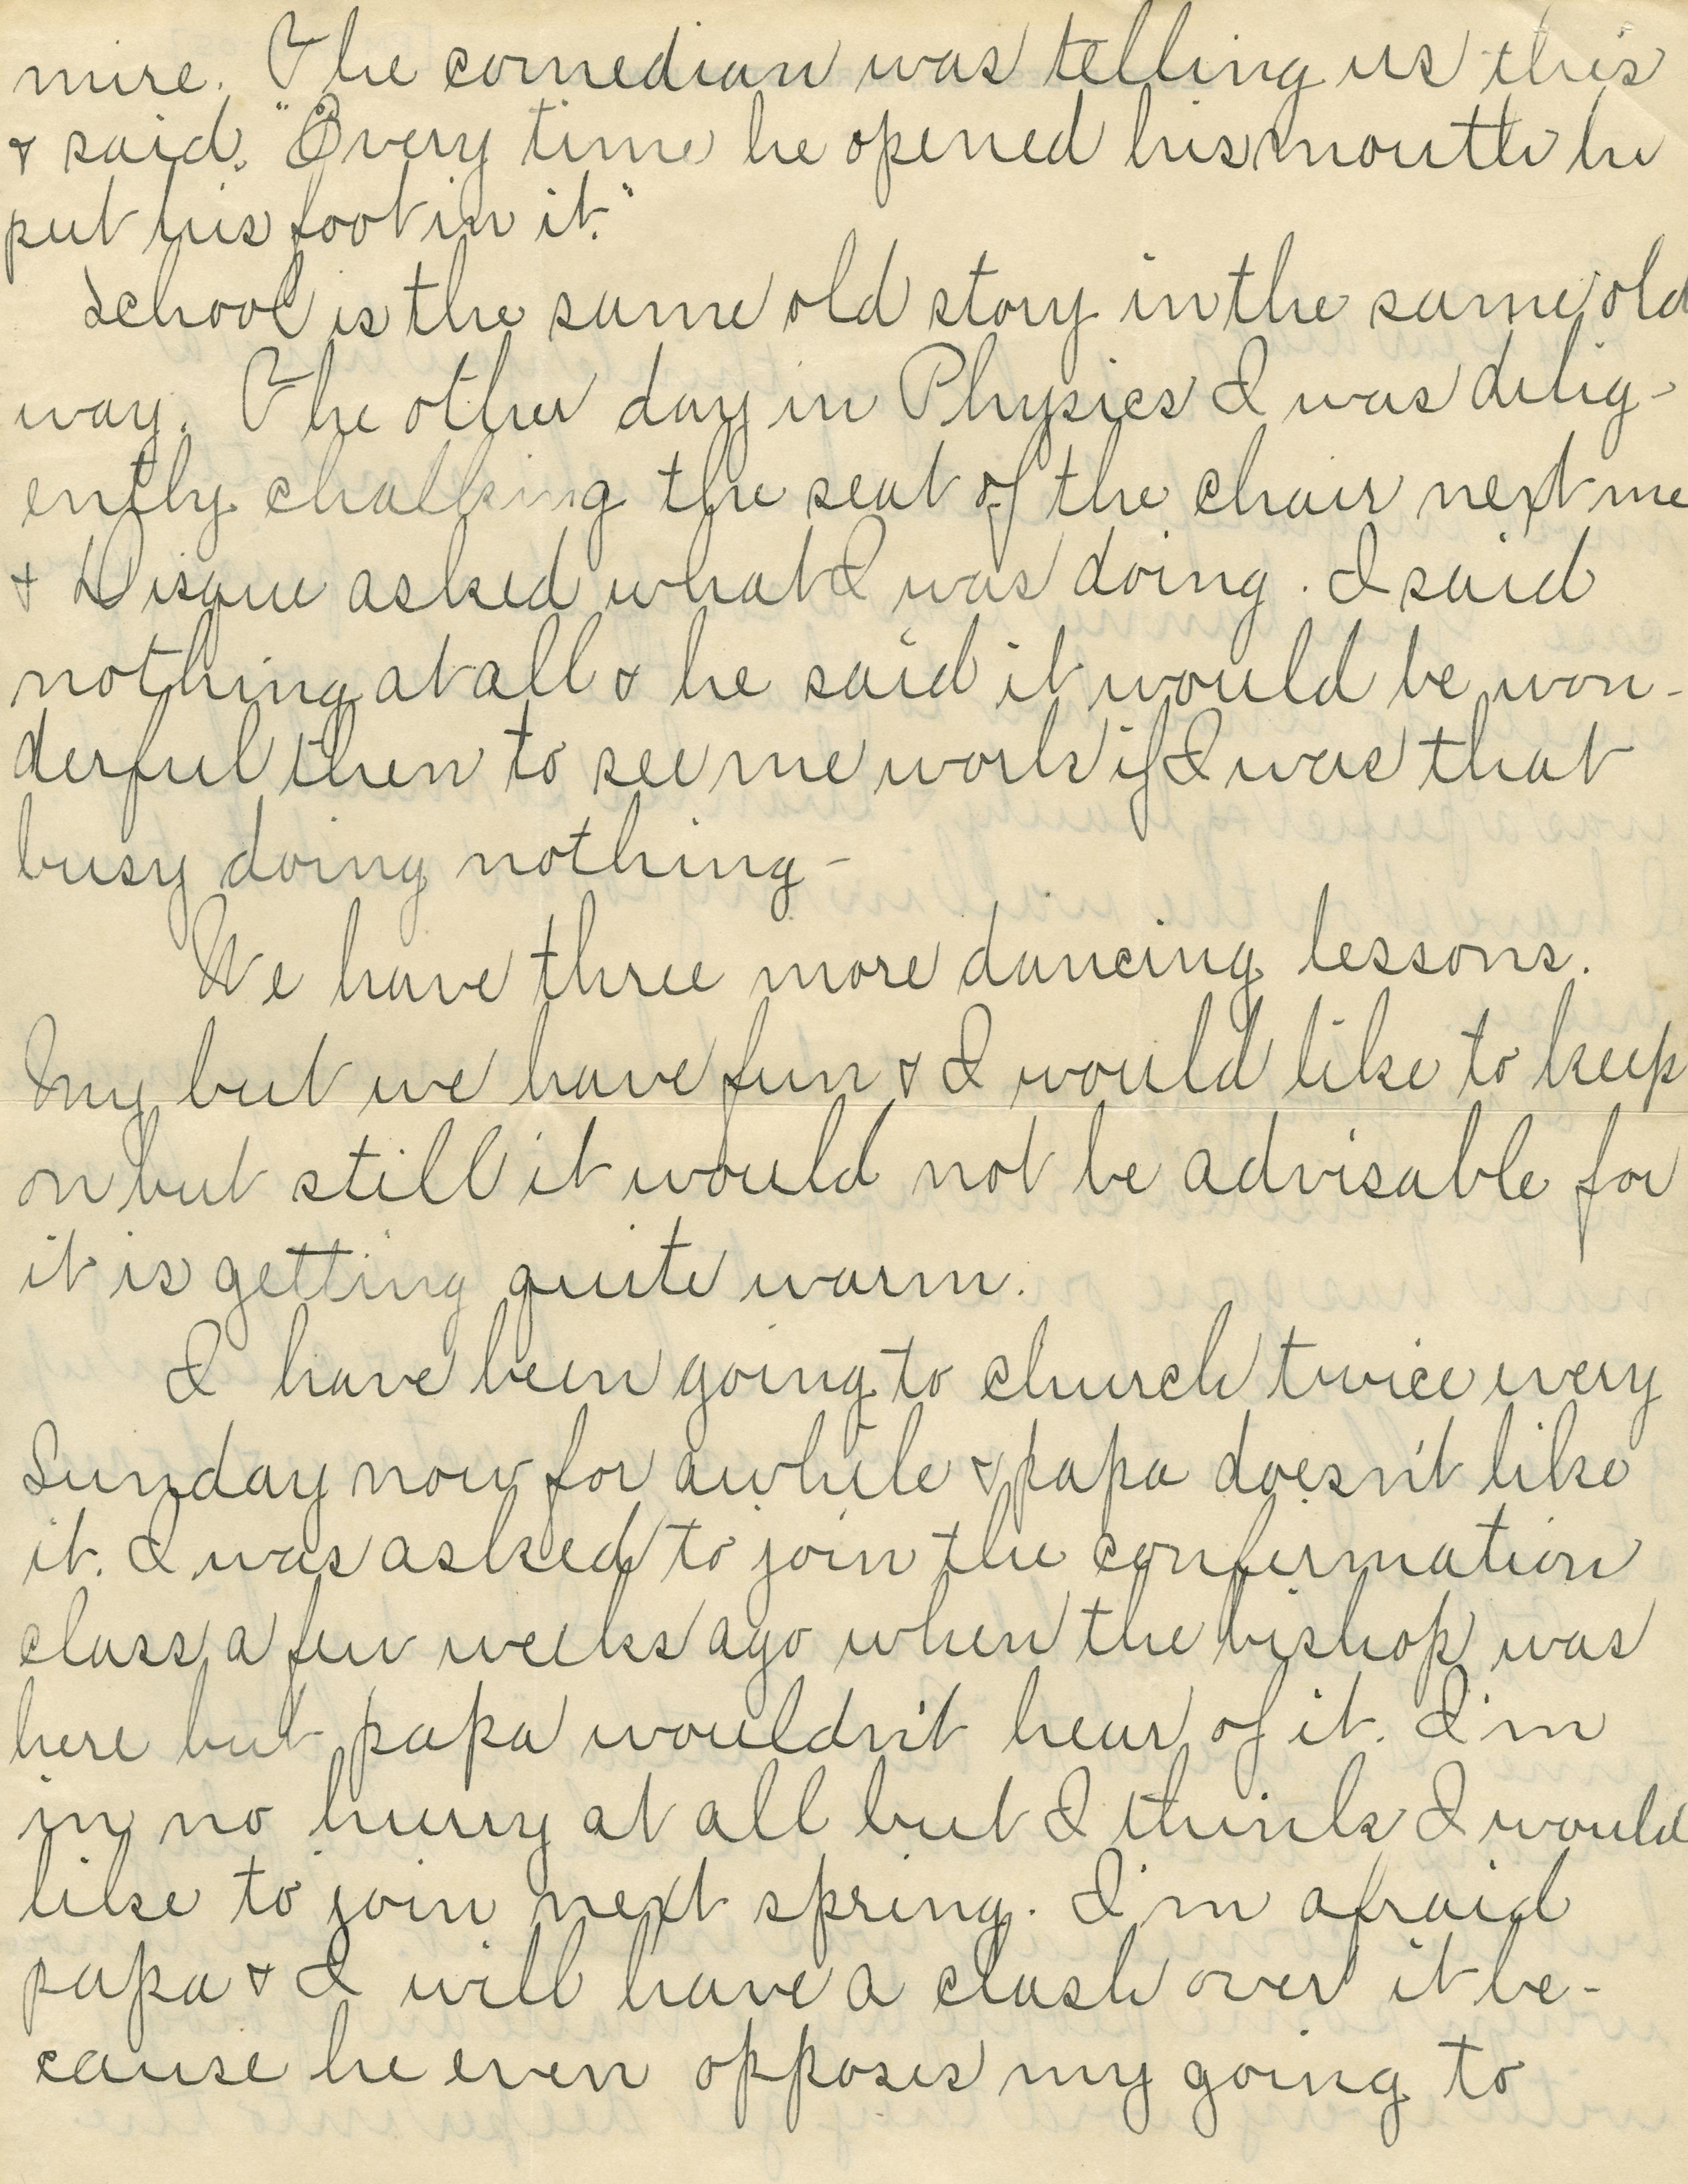 mire. The comedian was telling us this
& said. "Every time he opened his mouth he
put his foot in it."
School is the same old story in the same old
way. The other day in Physics I was dilig-
ently chalking the seat of the chair next me
& Disque asked what I was doing. I said
nothing at all & he said it would be won-
derful then to see me work if I was that
busy doing nothing -
We have three more dancing lessons.
My but we have fun & I would like to keep
on but still it would not be advisable for
it is getting quite warm.
I have been going to church twice every
Sunday now for awhile & papa doesn't like
it. I was asked to join the confirmation
class a few weeks ago when the bishop was
here but papa wouldn't hear of it. I'm
in no hurry at all but I think I would
like to join next spring. I'm afraid
papa & I will have a clash over it be-
cause he even opposes my going to